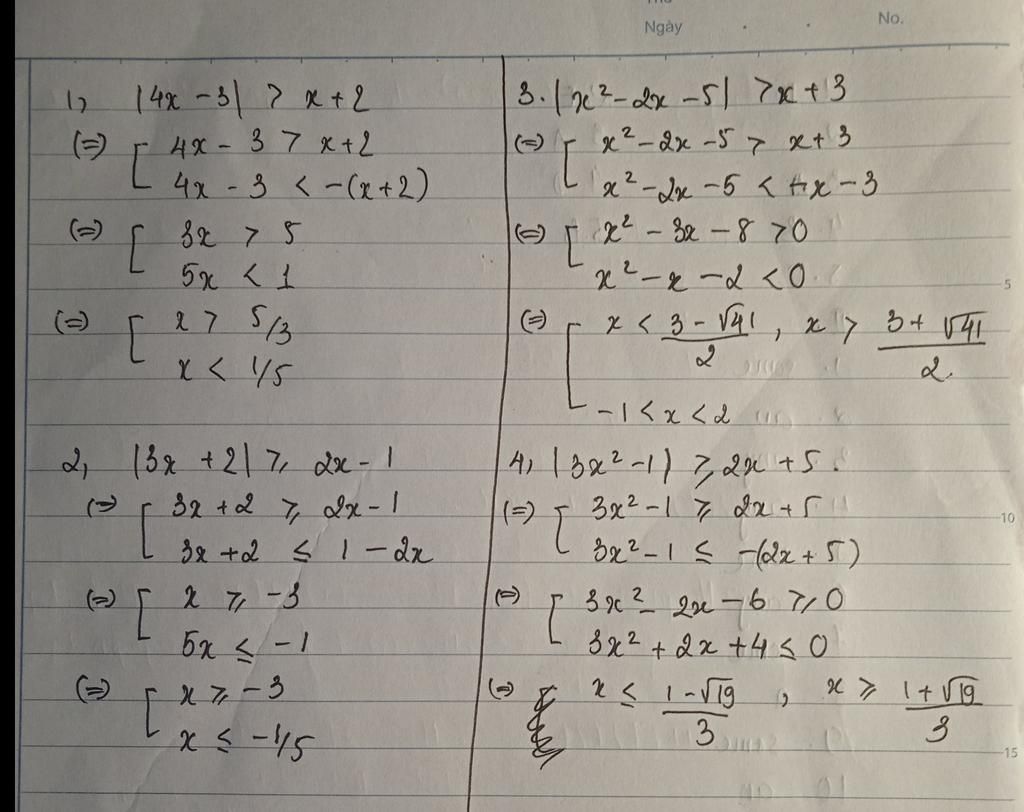 Ngày
No.
1) |4x - 3| > x + 2
(=) [ 4x - 3 > x + 2
4x - 3 < -(x + 2)
(=) [ 3x > 5
5x < 1
(=) [ x > 5/3
x < 1/5
2, |3x + 2| ≥ 2x - 1
(=) [ 3x + 2 ≥ 2x - 1
3x + 2 ≤ 1 - 2x
(=) [ x ≥ -3
5x ≤ -1
(=) [ x ≥ -3
x ≤ -1/5
3. |x² - 2x - 5| > x + 3
(=) [ x² - 2x - 5 > x + 3
x² - 2x - 5 < -x - 3
(=) [ x² - 3x - 8 > 0
x² - x - 2 < 0
(=) [ x < (3 - √41)/2 , x > (3 + √41)/2
-1 < x < 2
4, |3x² - 1| ≥ 2x + 5.
(=) [ 3x² - 1 ≥ 2x + 5
3x² - 1 ≤ -(2x + 5)
(=) [ 3x² - 2x - 6 ≥ 0
3x² + 2x + 4 ≤ 0
(=) x ≤ (1 - √19)/3 , x ≥ (1 + √19)/3
5
10
15